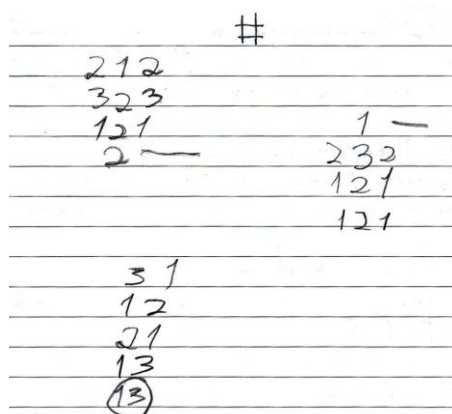 #
212
323
121
2 —
1 —
232
121
121
31
12
21
13
13